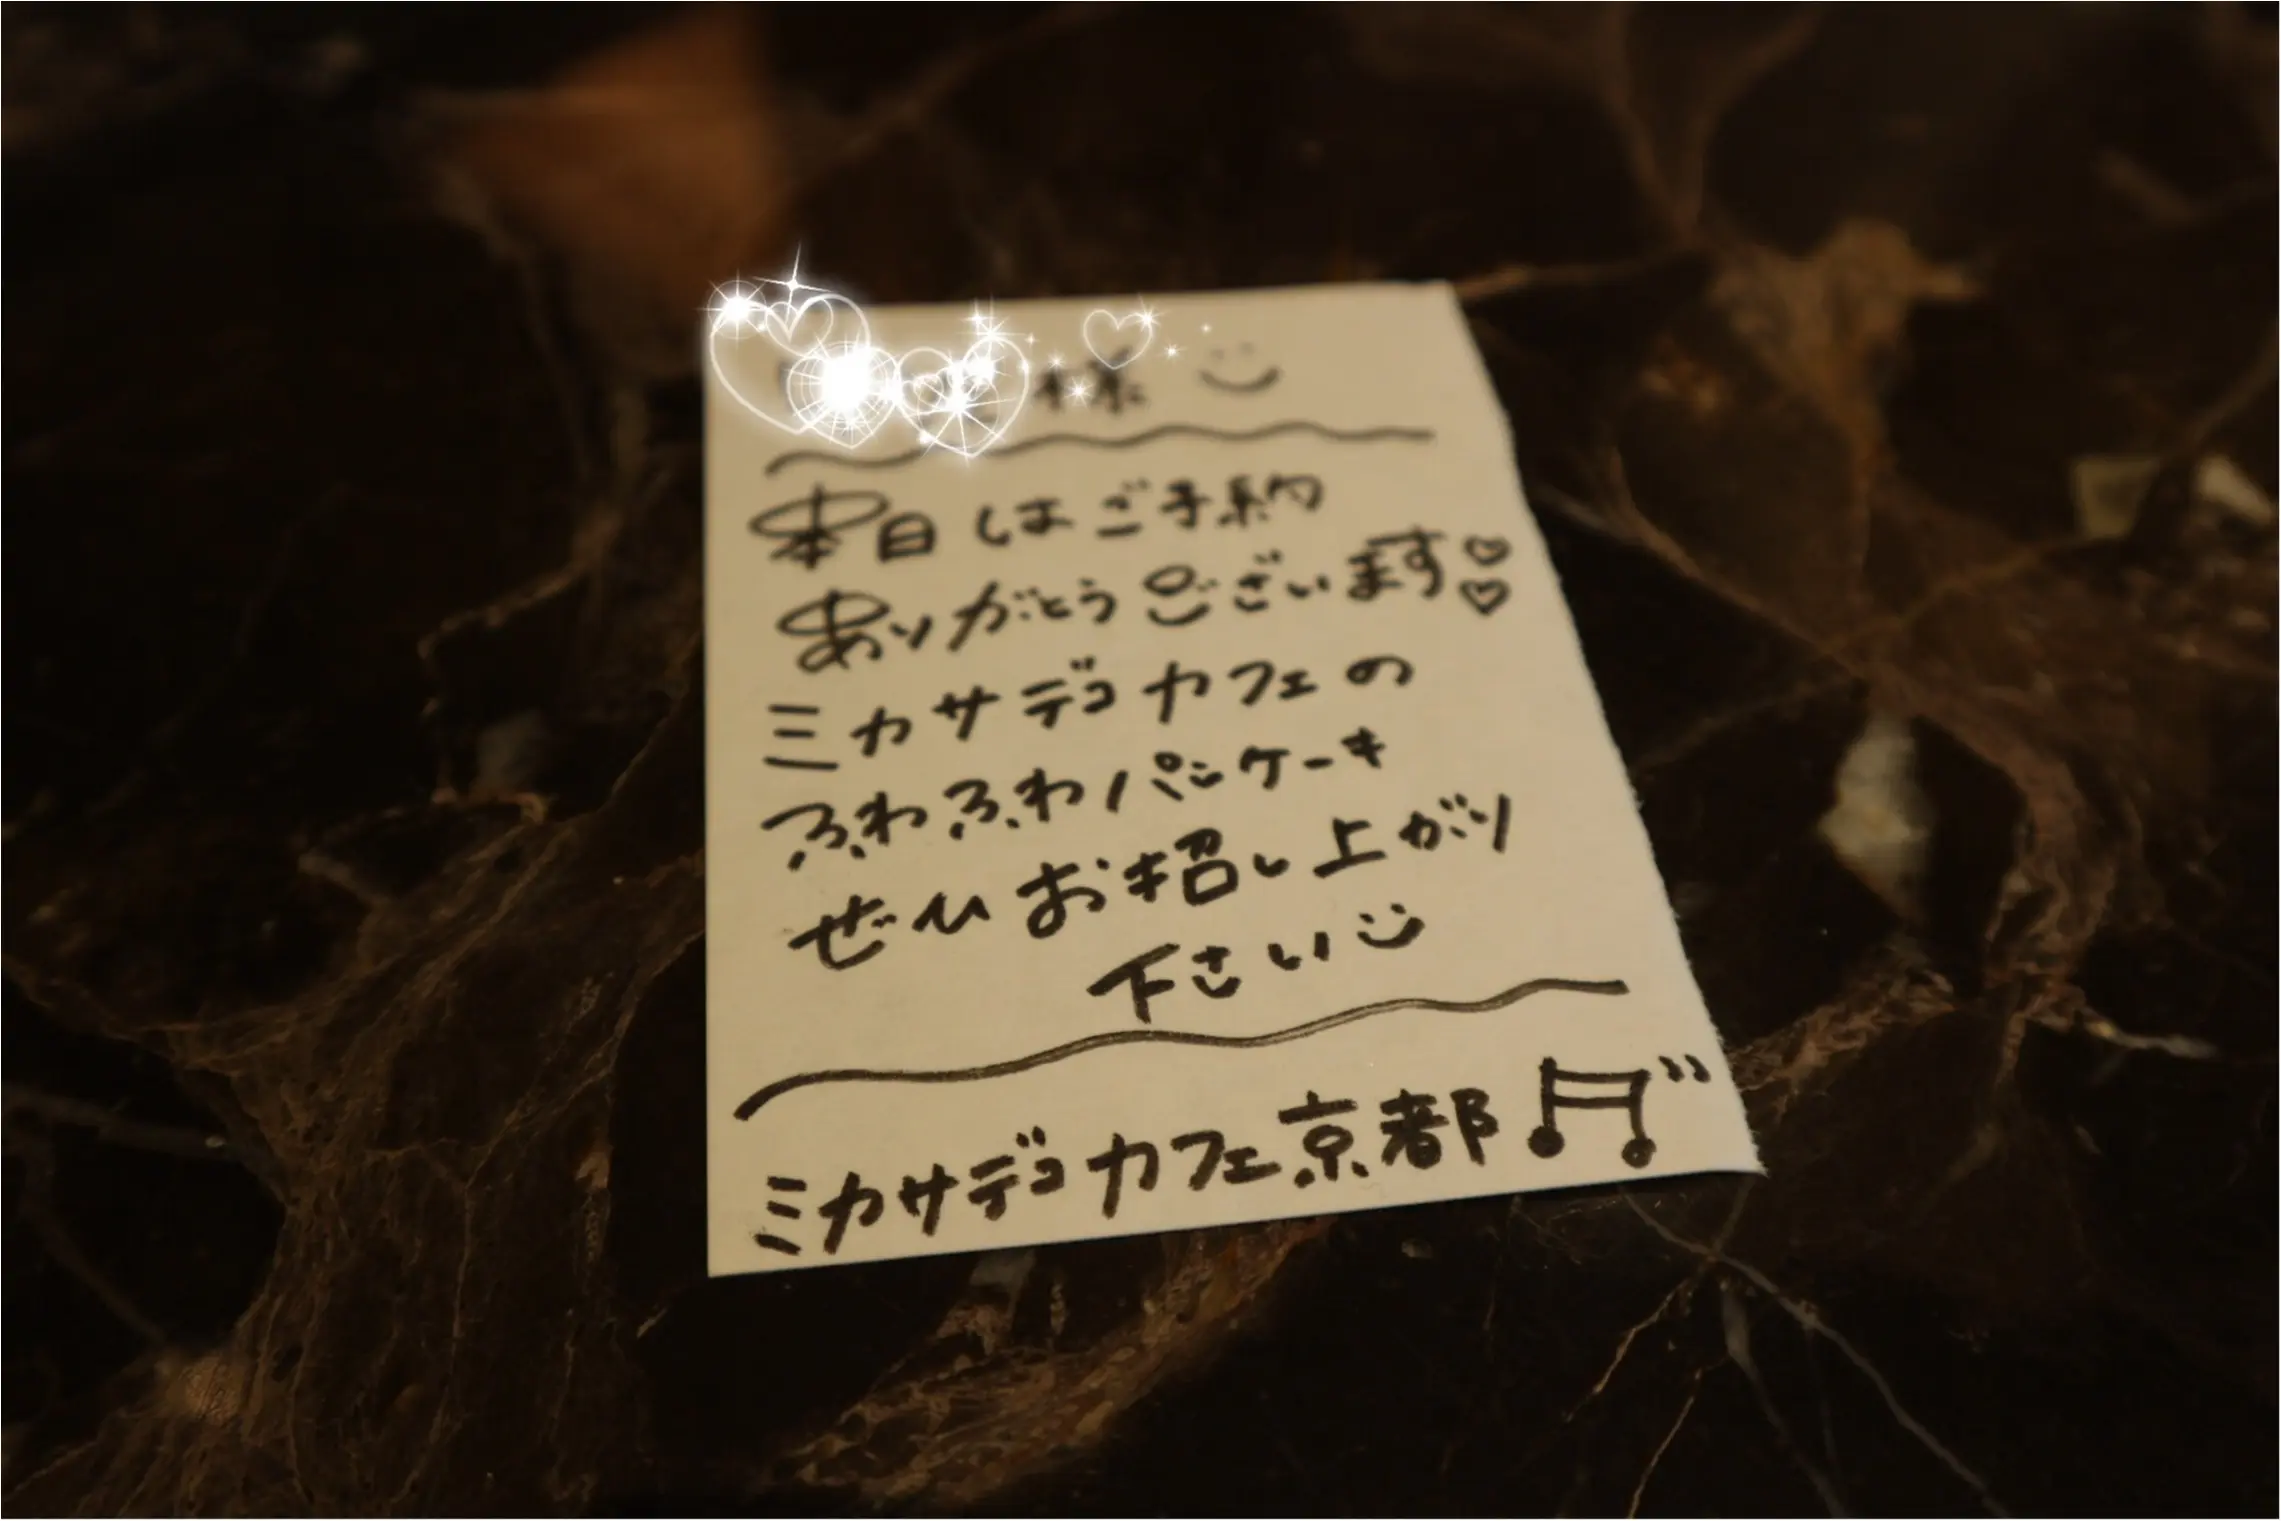 様
本日はご予約
ありがとうございます♡♡
ミカサデコカフェの
ふわふわパンケーキ
ぜひお招し上がり
下さい
ミカサデコカフェ京都♬